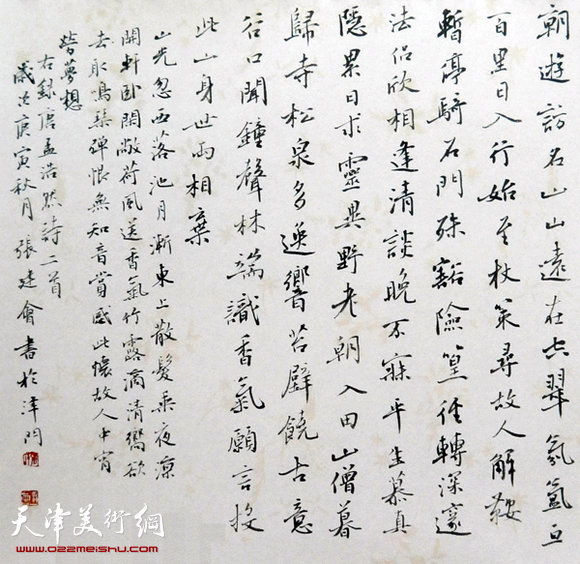 朝遊訪名山山遠在空翠氛氳亘
百里日入行始至杖策尋故人解鞍
暫停騎石門殊豁險篁徑轉深邃
法侶欣相逢清談晚不寐平生慕真
隱累日求靈異野老朝入田山僧暮
歸寺松泉多逸響苔壁饒古意
谷口聞鐘聲林端識香氣願言投
此山身世兩相棄
山光忽西落池月漸東上散髮乘夜涼
開軒臥閑敞荷風送香氣竹露滴清響欲
去取鳴琴彈恨無知音賞感此懷故人中宵
勞夢想
右錄唐孟浩然詩二首
歲次庚寅秋月張建會書於津門
天津美術網
www.022meishu.com